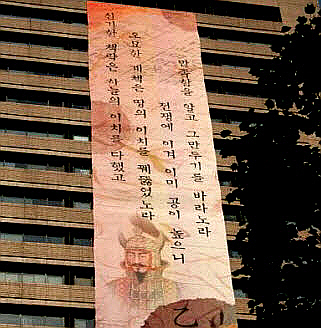 신기한 책략은 하늘의 이치를 다했고
오묘한 계책은 땅의 이치를 꿰뚫었노라
전쟁에 이겨 이미 공이 높으니
만족함을 알고 그만두기를 바라노라
乙